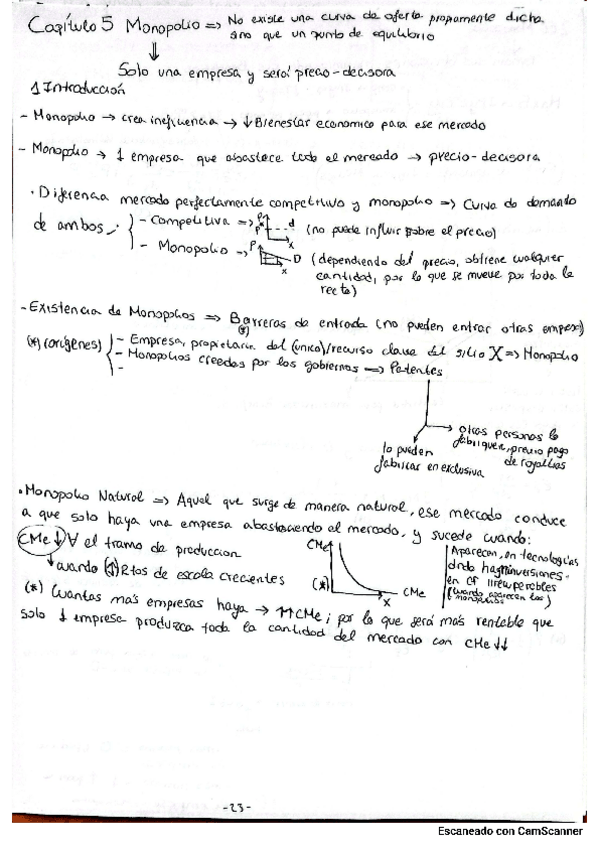 Capítulo 5 Monopolio => No existe una curva de oferta propamente dicha
sino que un punto de equilibrio
⇓
Solo una empresa y será precio-decisora
1 Introducción
- Monopolio → crea ineficiencia → ↓ Bienestar economico para ese mercado
- Monopolio → 1 empresa que abastece todo el mercado → precio-decisora
· Diferencia mercado perfectamente competitivo y monopolio => Curva de demanda
de ambos { - Competitiva => P P* d X (no puede influir sobre el precio)
- Monopolio → P D X (dependiendo del precio, obtiene cualquier
cantidad, por lo que se mueve por toda la
recta)
- Existencia de Monopolios => Barreras de entrada (no pueden entrar otras empresas)
(*)
(*) (orígenes) { - Empresa, propietaria del (único)/recurso clave del sitio X => Monopolio
- Monopolios creados por los gobiernos => Patentes
-
otras personas lo
fabriquen, previo pago
de royalties
lo pueden
fabricar en exclusiva
· Monopolio Natural => Aquel que surge de manera natural, ese mercado conduce
a que solo haya una empresa abasteciendo el mercado, y sucede cuando:
CMe ↓ ∀ el tramo de produccion
↓ cuando (↑) Rtos de escala crecientes
CMe (*) CMe X
Aparecen, en tecnologías
dnde hay inversiones
en CF irrecuperables
(Cuando aparecen los monopolios)
(*) Cuantas más empresas haya → ↑↑CMe; por lo que será más rentable que
solo 1 empresa produzca toda la cantidad del mercado con CMe ↓↓
-23-
Escaneado con CamScanner